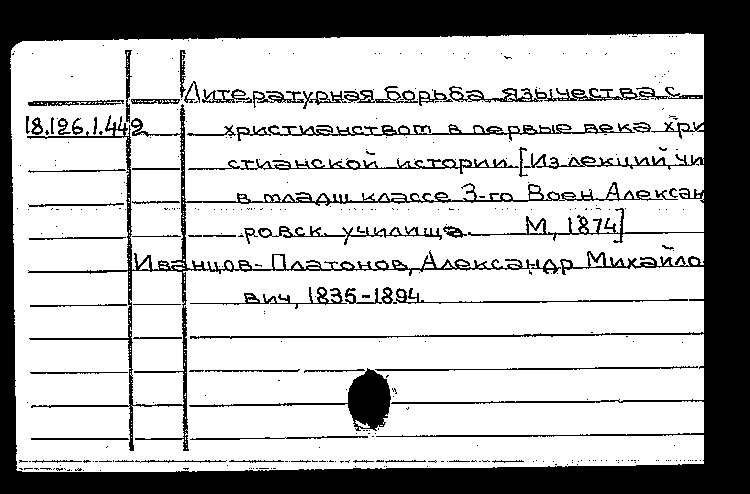 Литературная борьба язычества с
18.126.1.442 христианством в первые века хри
стианской истории. [Из лекций, чи
в младш классе 3-го Воен. Алексан
ровск. училища. М., 1874]
Иванцов-Платонов, Александр Михайло
вич, 1835-1894.